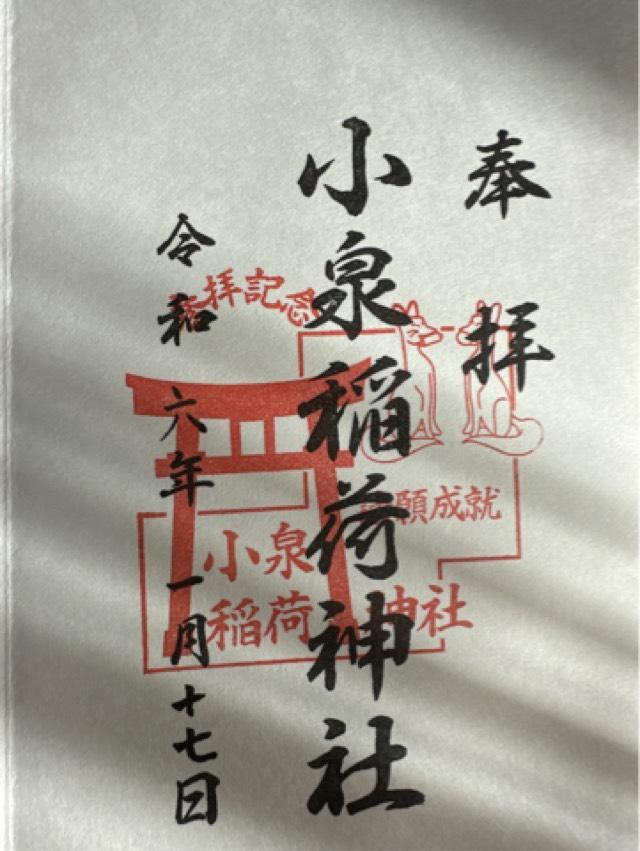 奉拝
小泉稲荷神社
令和六年一月十七日
拝記念
願成就
小泉
稲荷神社